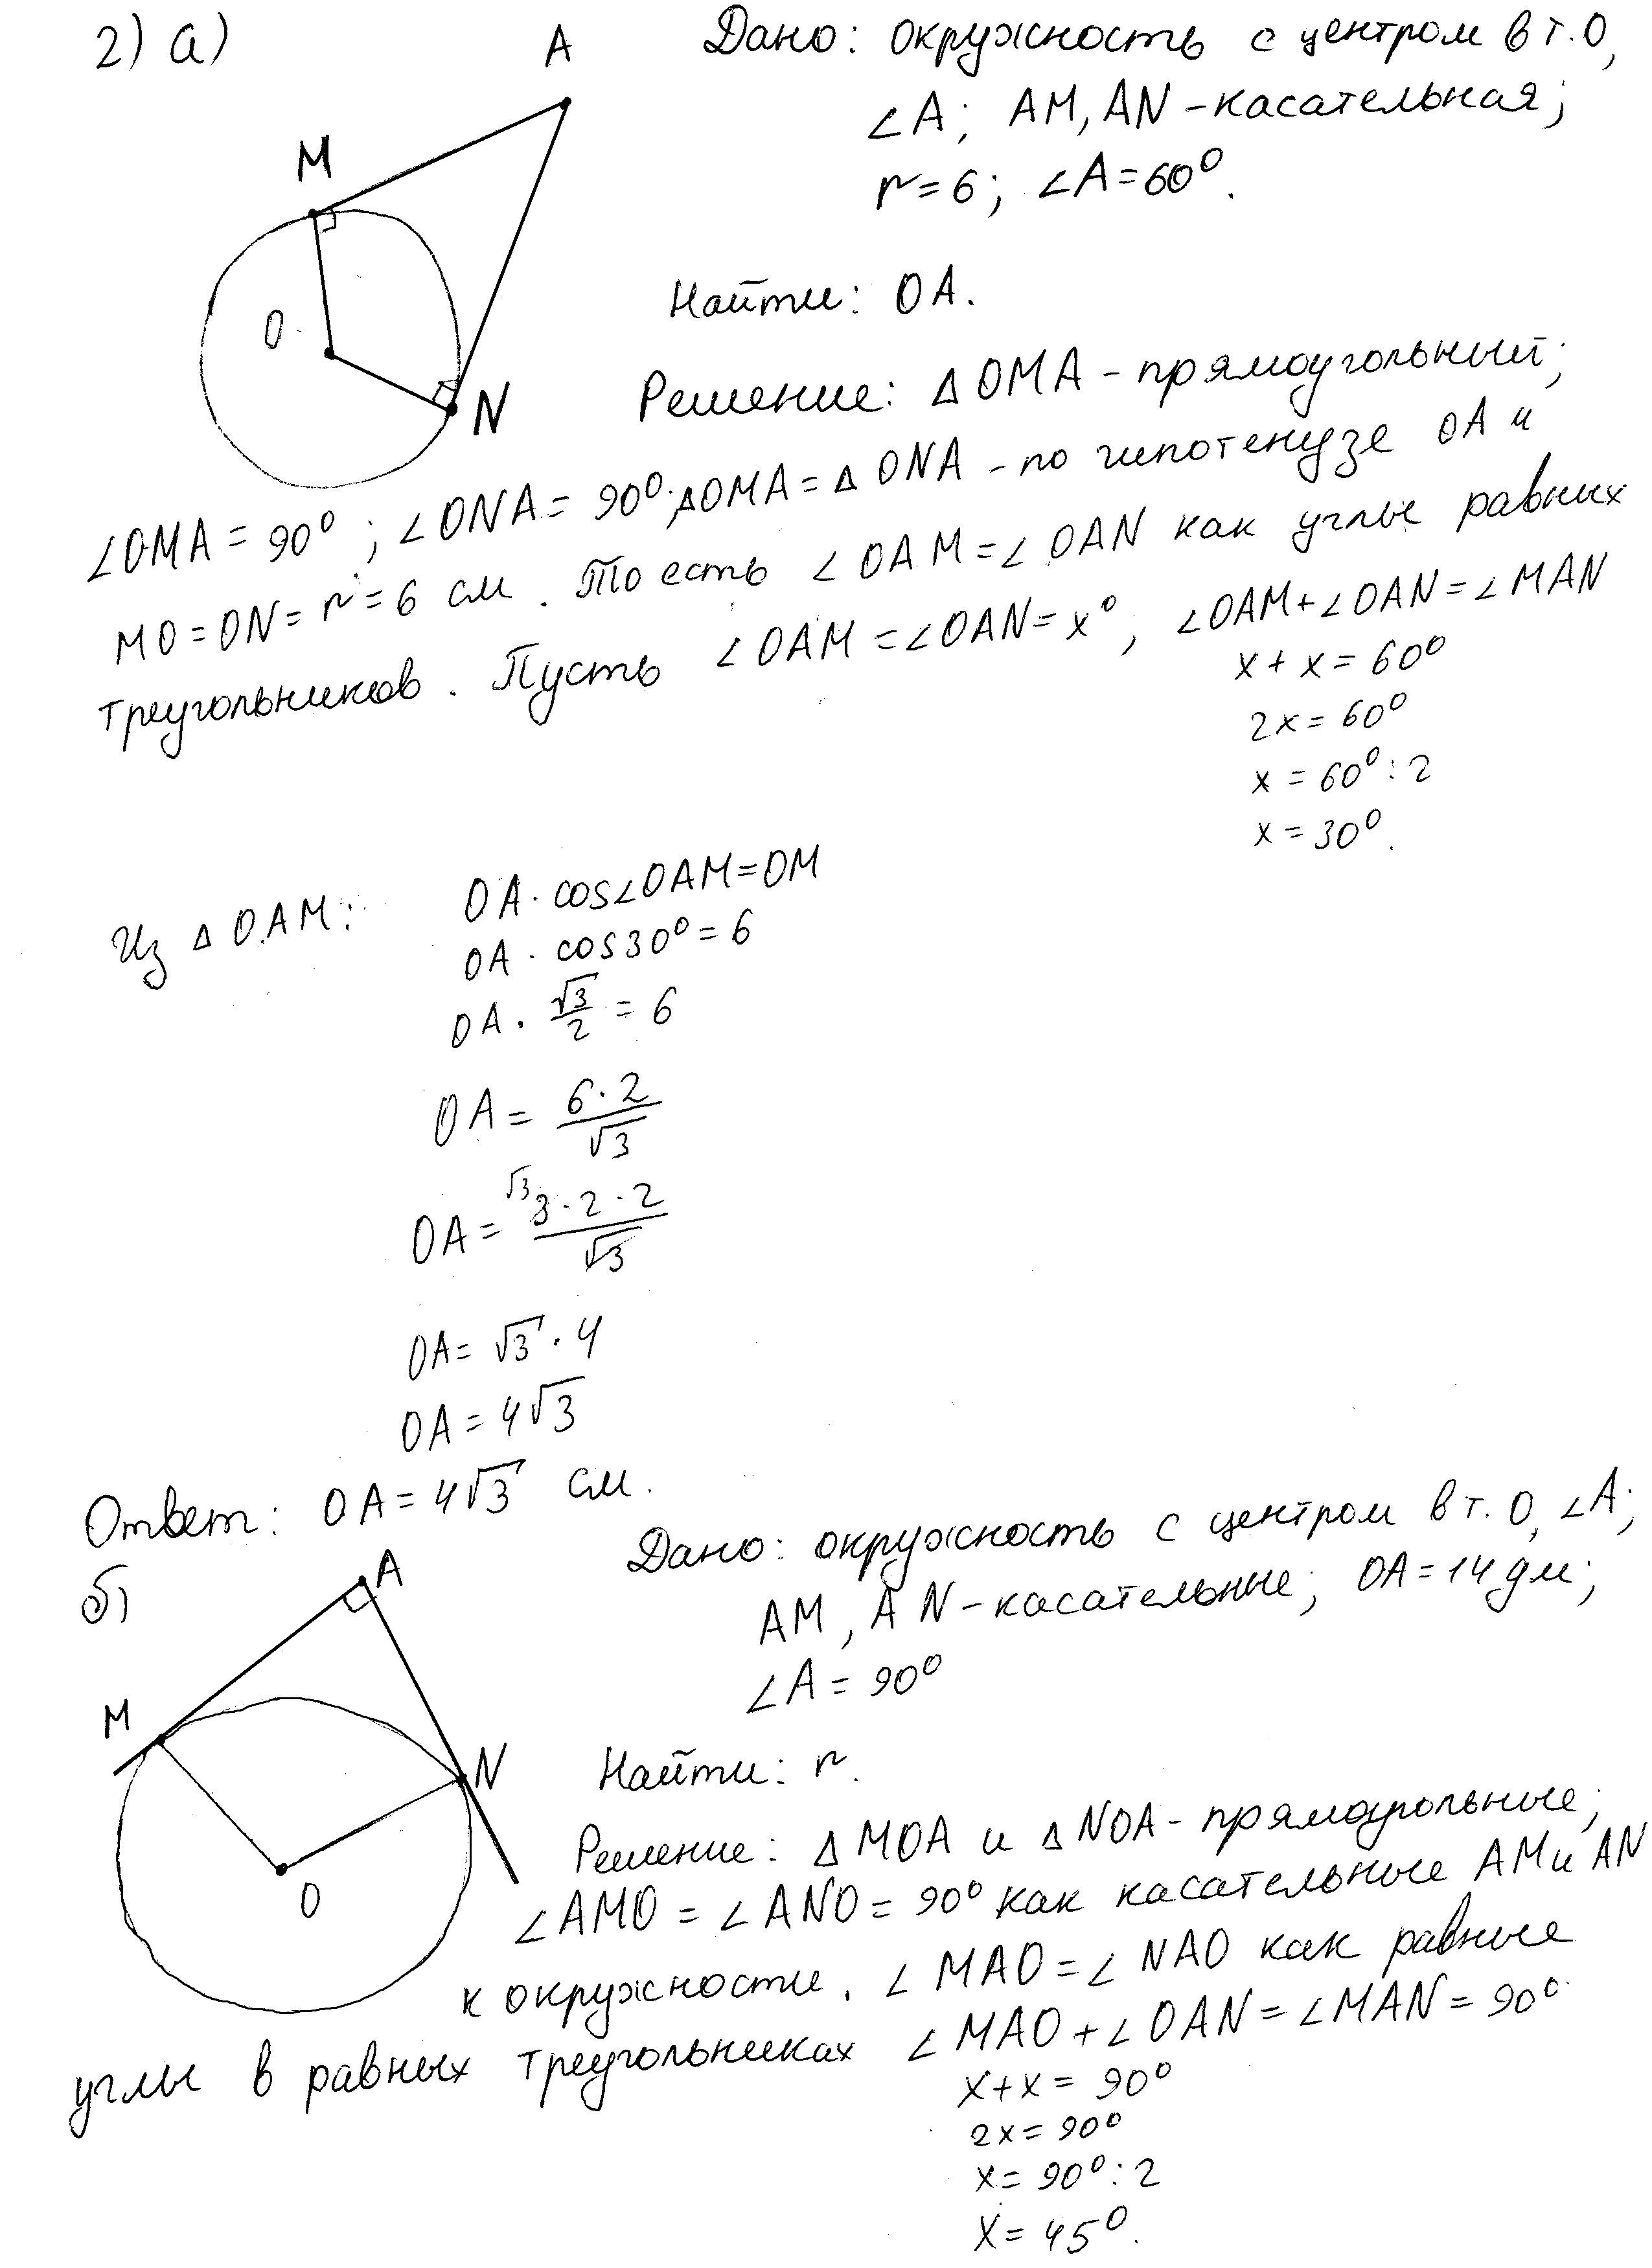 2) а)
A
M
O
N
Дано: окружность с центром в т. О,
∠A; AM, AN - касательная;
r = 6; ∠A = 60°.
Найти: OA.
Решение: △OMA - прямоугольный;
∠OMA = 90°; ∠ONA = 90°; △OMA = △ONA - по гипотенузе OA и
MO = ON = r = 6 см. То есть ∠OAM = ∠OAN как углы равных
треугольников. Пусть ∠OAM = ∠OAN = x°; ∠OAM + ∠OAN = ∠MAN
x + x = 60°
2x = 60°
x = 60° : 2
x = 30°.
Из △OAM: OA · cos∠OAM = OM
OA · cos30° = 6
OA · √3/2 = 6
OA = 6 · 2/√3
OA = √3 3 · 2 · 2/√3
OA = √3 · 4
OA = 4√3
Ответ: OA = 4√3 см.
б)
A
M
N
O
Дано: окружность с центром в т. О, ∠A;
AM, AN - касательные; OA = 14 дм;
∠A = 90°
Найти: r.
Решение: △MOA и △NOA - прямоугольные;
∠AMO = ∠ANO = 90° как касательные AM и AN
к окружности. ∠MAO = ∠NAO как равные
углы в равных треугольниках ∠MAO + ∠OAN = ∠MAN = 90°
x + x = 90°
2x = 90°
x = 90° : 2
x = 45°.